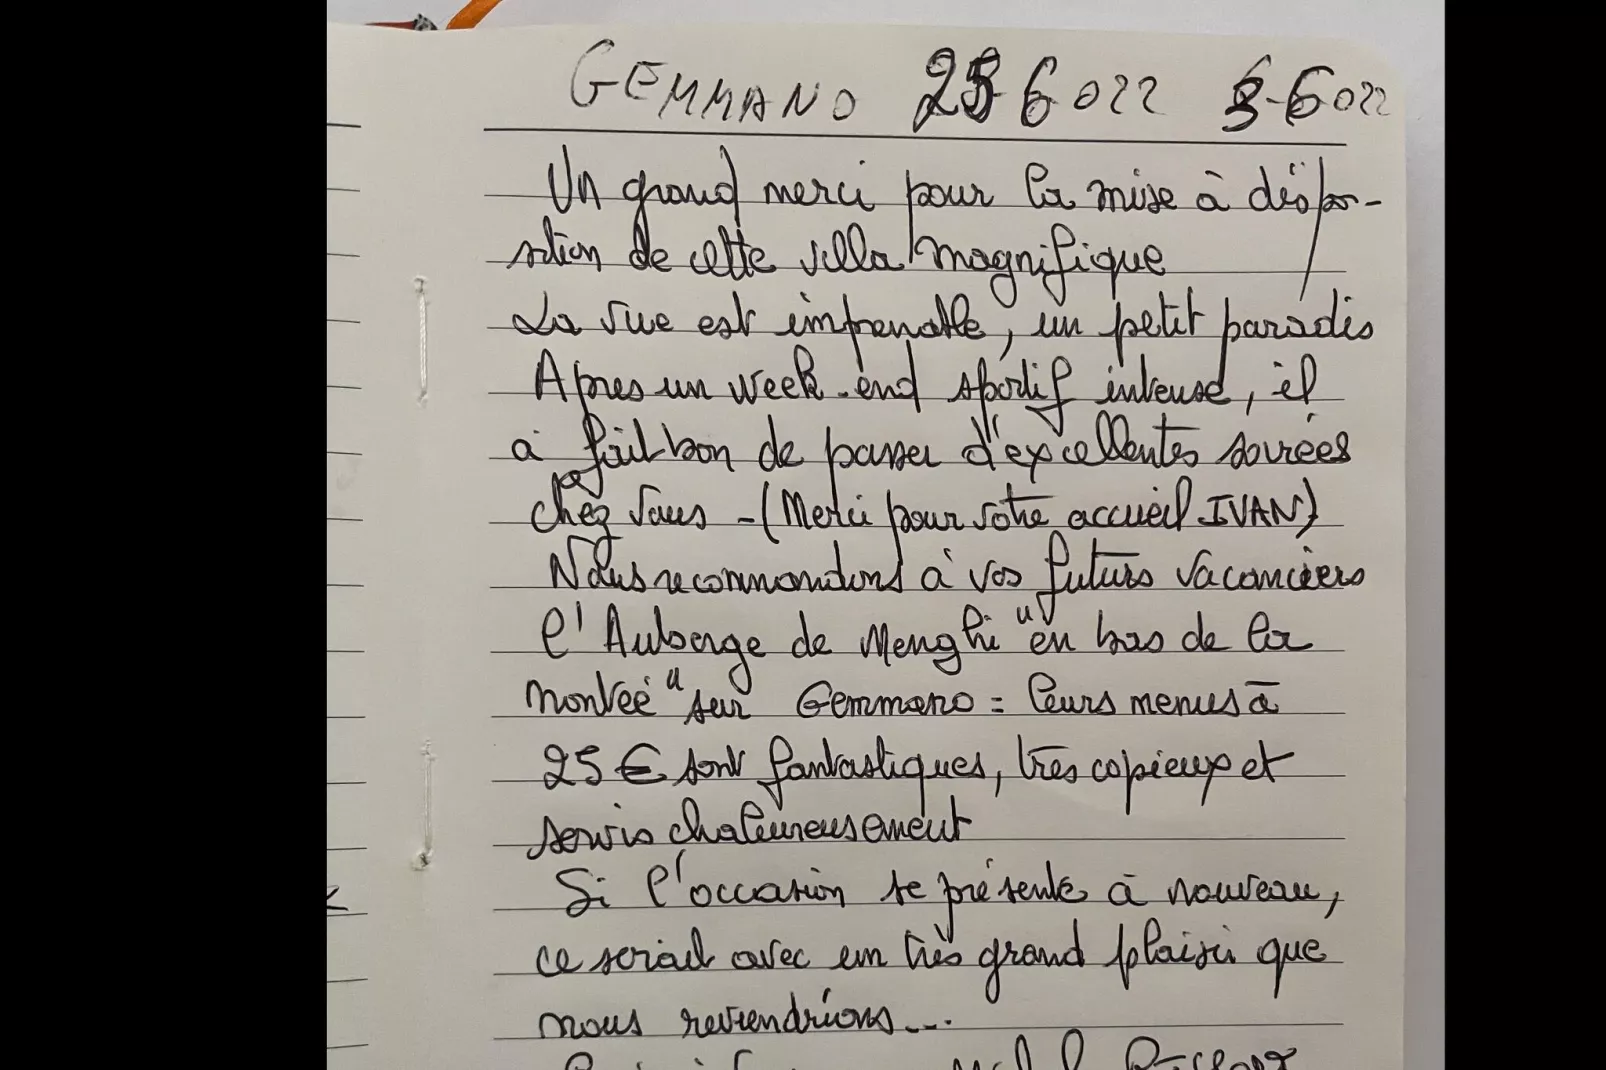 GEMMANO 25 6 022 5-6 022
Un grand merci pour la mise à dispo-
sition de cette villa magnifique
La vue est imprenable, un petit paradis
Apres un week-end sportif intense, il
à fait bon de passer d'excellentes soirées
chez vous - (Merci pour votre accueil IVAN)
Nous recommandons à vos futurs vacanciers
l'Auberge de Menghi "en bas de la
montée" sur Gemmano = leurs menus à
25 € sont fantastiques, très copieux et
servis chaleureusement
Si l'occasion se présente à nouveau,
ce serait avec un très grand plaisir que
nous reviendrions...